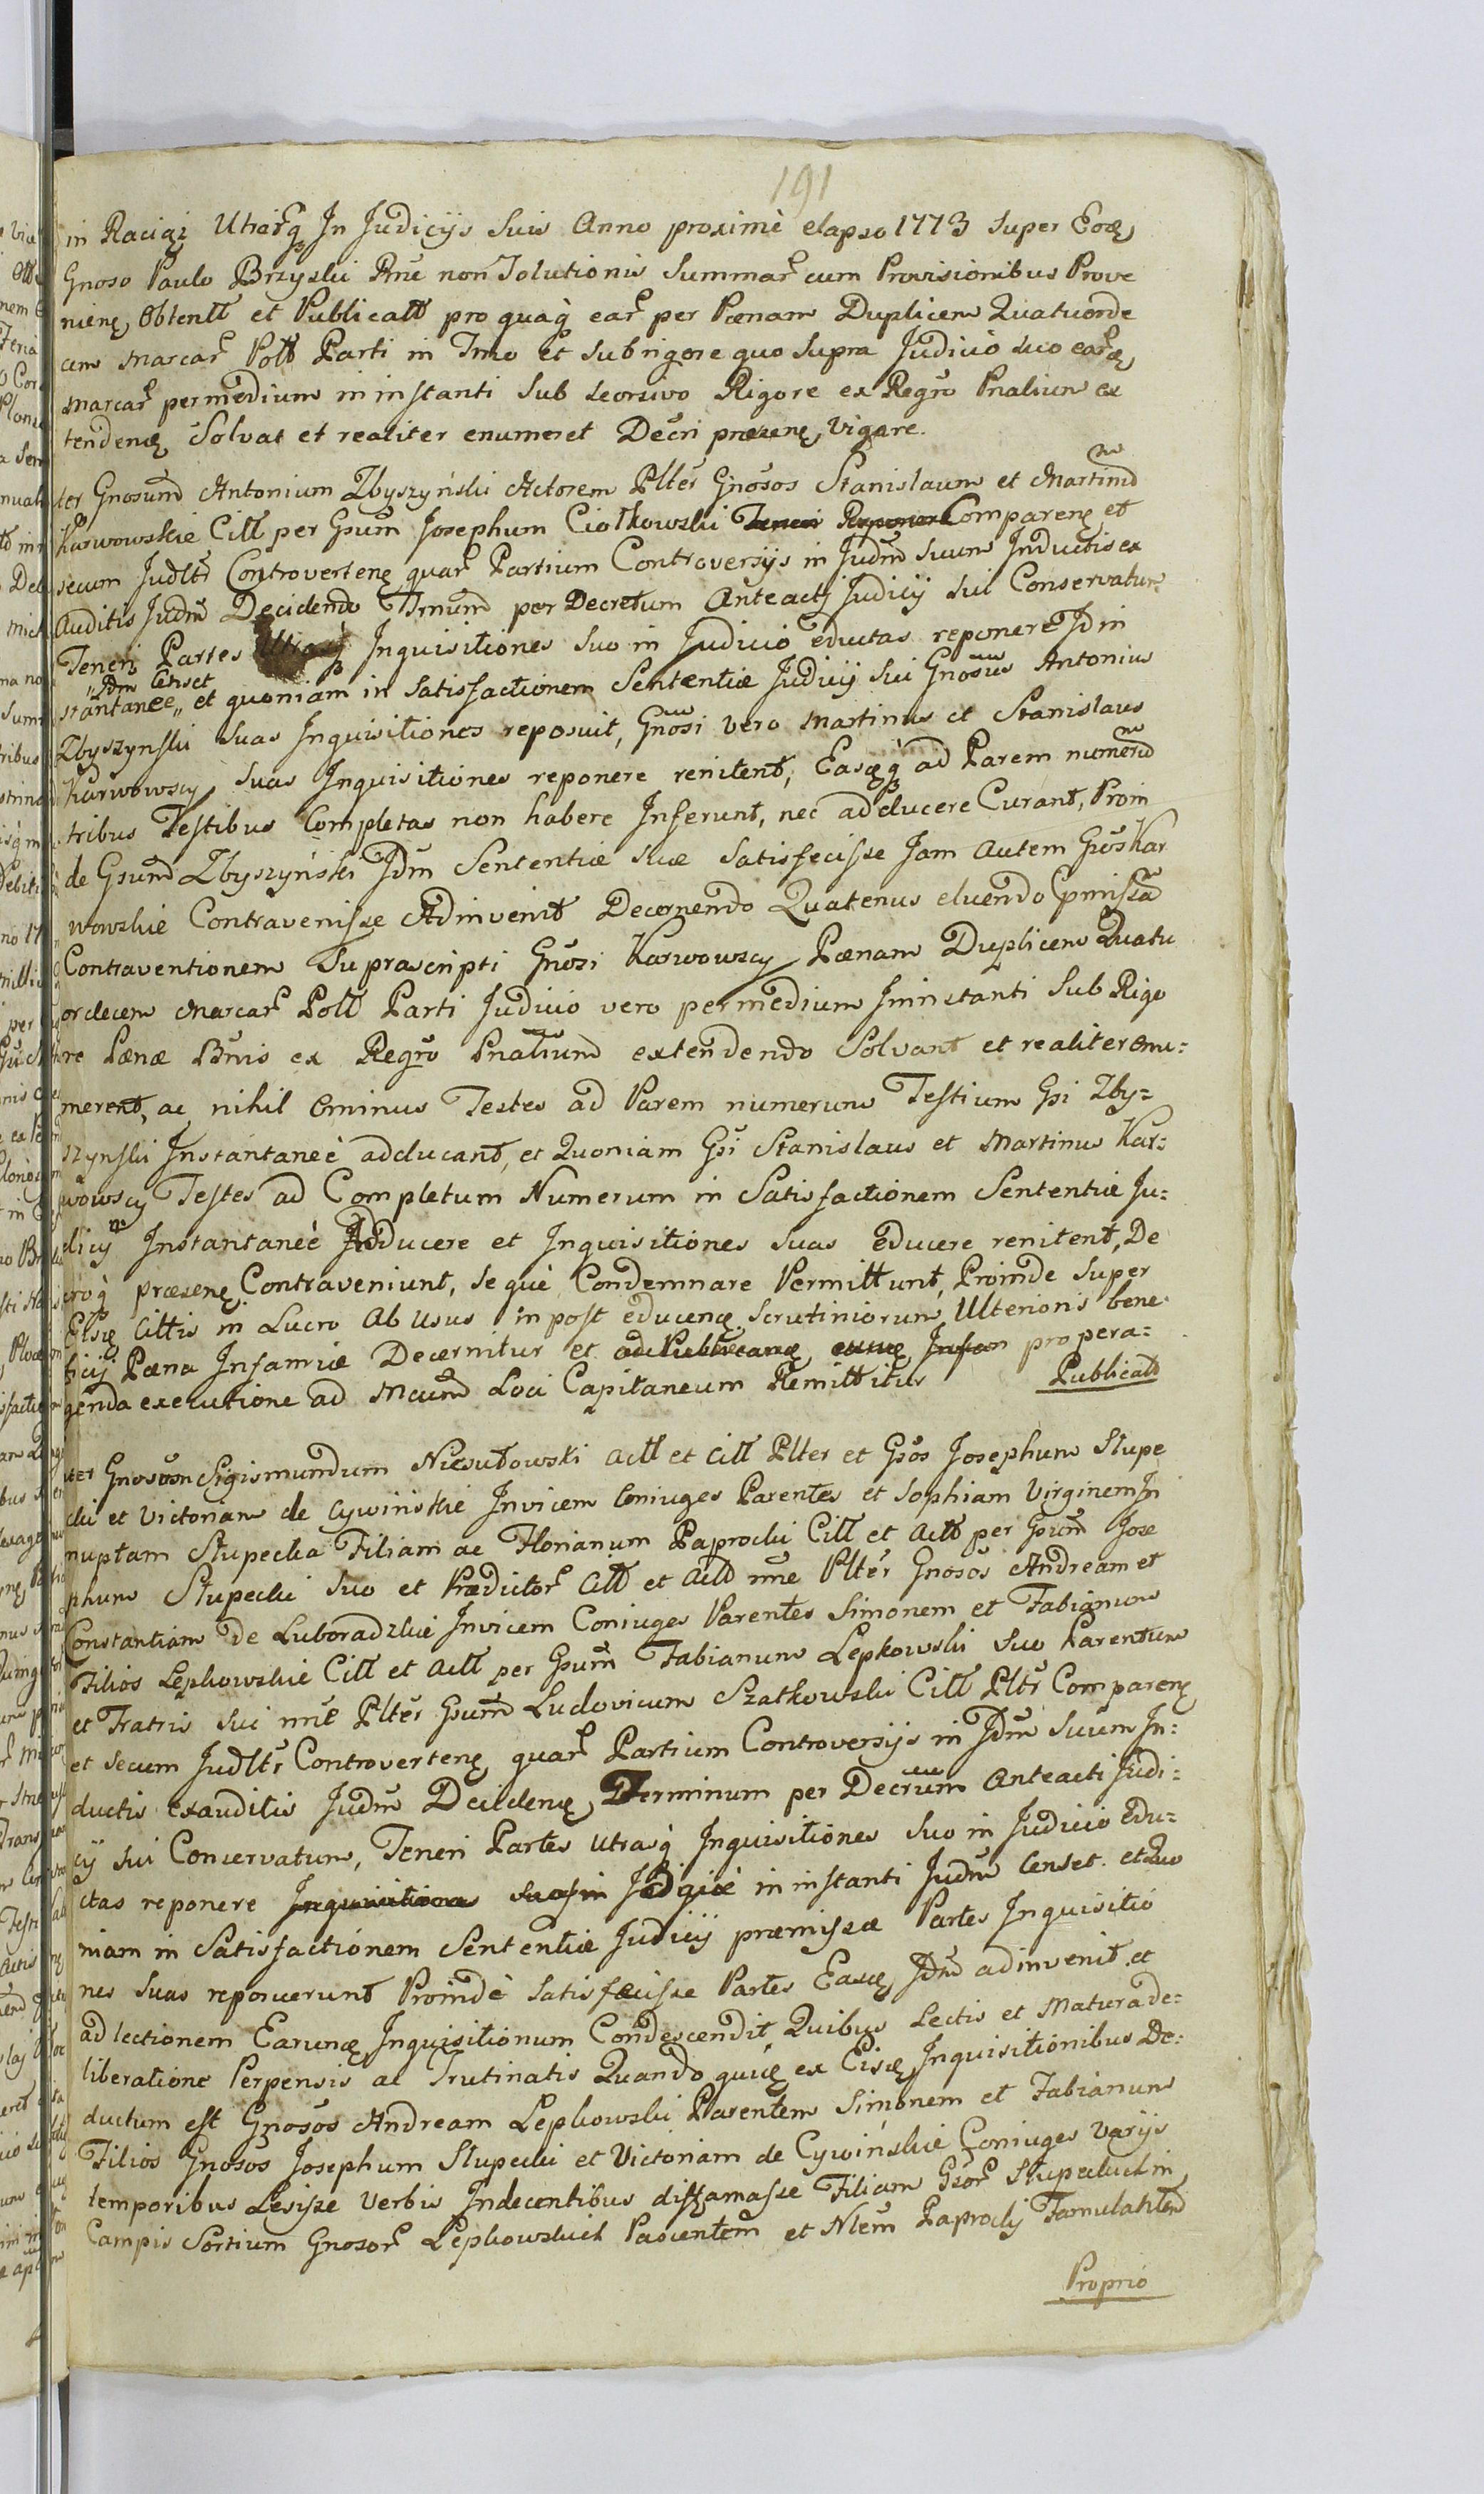 191
in Raciąż Utriarq̃ In Judicijs Suis Anno proximè elapso 1773 Super Eodę
Gnoso Paulo Brzyski Rñe non Solutionis Summar̃ cum Provisionibus Prove
nienę Obtentt et Publicatt pro quaq̀ ear̃ per Pœnam Duplicem Quatuorde
cem Marcar̃ Poltt Parti in Tmo et Sub rigore quo Supra Judicio suo earę
Marcar̃ per medium in instanti Sub seorsivo Rigore ex Regr̃o Pnalium ex
tendenę Solvat et realiter enumeret Decri præsenę Vigore.
ter Gnosum̃ Antonium Zbyszyński Actorem Pltẽr Gnõsos Stanislaum et Martinũ
Karwowskie Citt per Gsum̃ Josephum Ciołkowski Teneri Reponere Comparenę et
secum Judltr̃ Controvertenę quar̃ Partium Controversijs in Judm̃ Suum Inductis ex
Auditis Judm̃ Decidendo Tmum̃ per Decretum Anteacti Judicij Sui Conservatum
Teneri Partes Utrasq̀ Inquisitiones Suo in Judicio eductas reponere Jd in
stantanee „Jdm Censet„ et quoniam in Satisfactionem Sententiæ Judicij Sui Gnosus Antonius
Zbyszynski Suas Inquisitiones reposuit, Gnõsi vero Martinus et Stanislaus
Karwowscy Suas Inquisitiones reponere renitent, Easq̀ ad Parem numerũ
tribus Testibus Completas non habere Inferunt, nec adducere Curant, Proin
de Gsum̃ Zbyszyński Jdm̃ Sententiæ Suæ Satisfecisse Jam Autem Gsõs Kar
wowskie Contravenisse Adinvenit Decernendo Quatenus eluendo Pmissã
Contraventionem Suprascripti Gnõsi Karwowscy Pœnam Duplicem Quatu
ordecem Marcar̃ Poltt Parti Judicio vero per medium In instanti Sub Rigo
re Pænæ Bnis ex Regr̃o Pnaliũm extendendo Solvant et realiter enu=
merent, ac nihil ominus Testes ad Parem numerum Testium Gsi Zby=
szynski Instantaneè adducant, et Quoniam Gsi Stanislaus et Martinus Kar=
wowscy Testes ad Completum Numerum in Satisfactionem Sententiæ Ju=
dicij Instantaneè Adducere et Inquisitiones Suas educere renitent, De
croq̀ præsenę Contraveniunt, se què Condemnare Permittunt, Proinde Super
Eisdę Cittis in Lucro Ab Usus inpost educenę Scrutiniorum Ulterioris bene
ficij Pœna Infamiæ Decernitur et ad Publicanę eamę Infam pro pera=
genda executione ad Mcum̃ Loci Capitaneum Remittitur Publicatt
ter Gnosum Sigismundum Niesułowski Actt et Citt Plter et Gsõs Josephum Słupe
cki et Victoriam de Cywińskie Invicem Coniuges Parentes et Sophiam Virginem In
nuptam Słupecka Filiam ac Florianum Paprocki Citt et Actt per Gsum̃ Jose
phum Słupecki Suo et Prædictor̃ Citt et Actt nñe Pltẽr Gnosõs Andream et
Constantiam De Luboradzkie Invicem Coniuges Parentes Simonem et Fabianum
Filios Lepkowskie Citt et Actt per Gsum̃ Fabianum Lepkowski Suo Parentum
et Fratris Sui nñe Pltẽr Gsum̃ Ludovicum Szatkowski Citt Pltr̃ Comparenę
et Secum Judltr̃ Controvertenę quar̃ Partium Controversijs in Jdm̃ Suum In=
ductis exauditis Judm̃ Decidenę Terminum per Decrũm Anteacti Judi=
cij Sui Conservatum, Teneri Partes Utrasq̀ Inquisitiones Suo in Judicio Edu=
ctas reponere Inquisitiones Suas in in instanti Judm̃ Censet. et Quo
niam in Satisfactionem Sententiæ Judicij præmissæ Partes Inquisitio
nes Suas reposuerunt Proindè Satisfecisse Partes Easdę Jdm̃ adinvenit et
ad lectionem Earundę Inquisitionum Condescendit Quibus Lectis et Matura de=
liberatione Perpensis ac Trutinatis Quando quidę ex Eisdę Inquisitionibus De=
ductum est Gnosõs Andream Lepkowski Parentem Simonem et Fabianum
Filios Gnosõs Josephum Słupecki et Victoriam de Cywińskie Coniuges Varijs
temporibus Lesisse Verbis Indecentibus diffamasse Filiam Gsor̃ Słupeckich in
Campis Sortium Gnosor̃ Lepkowskich Pascentem et Nlem̃ Paprocki Famulantem
Proprio